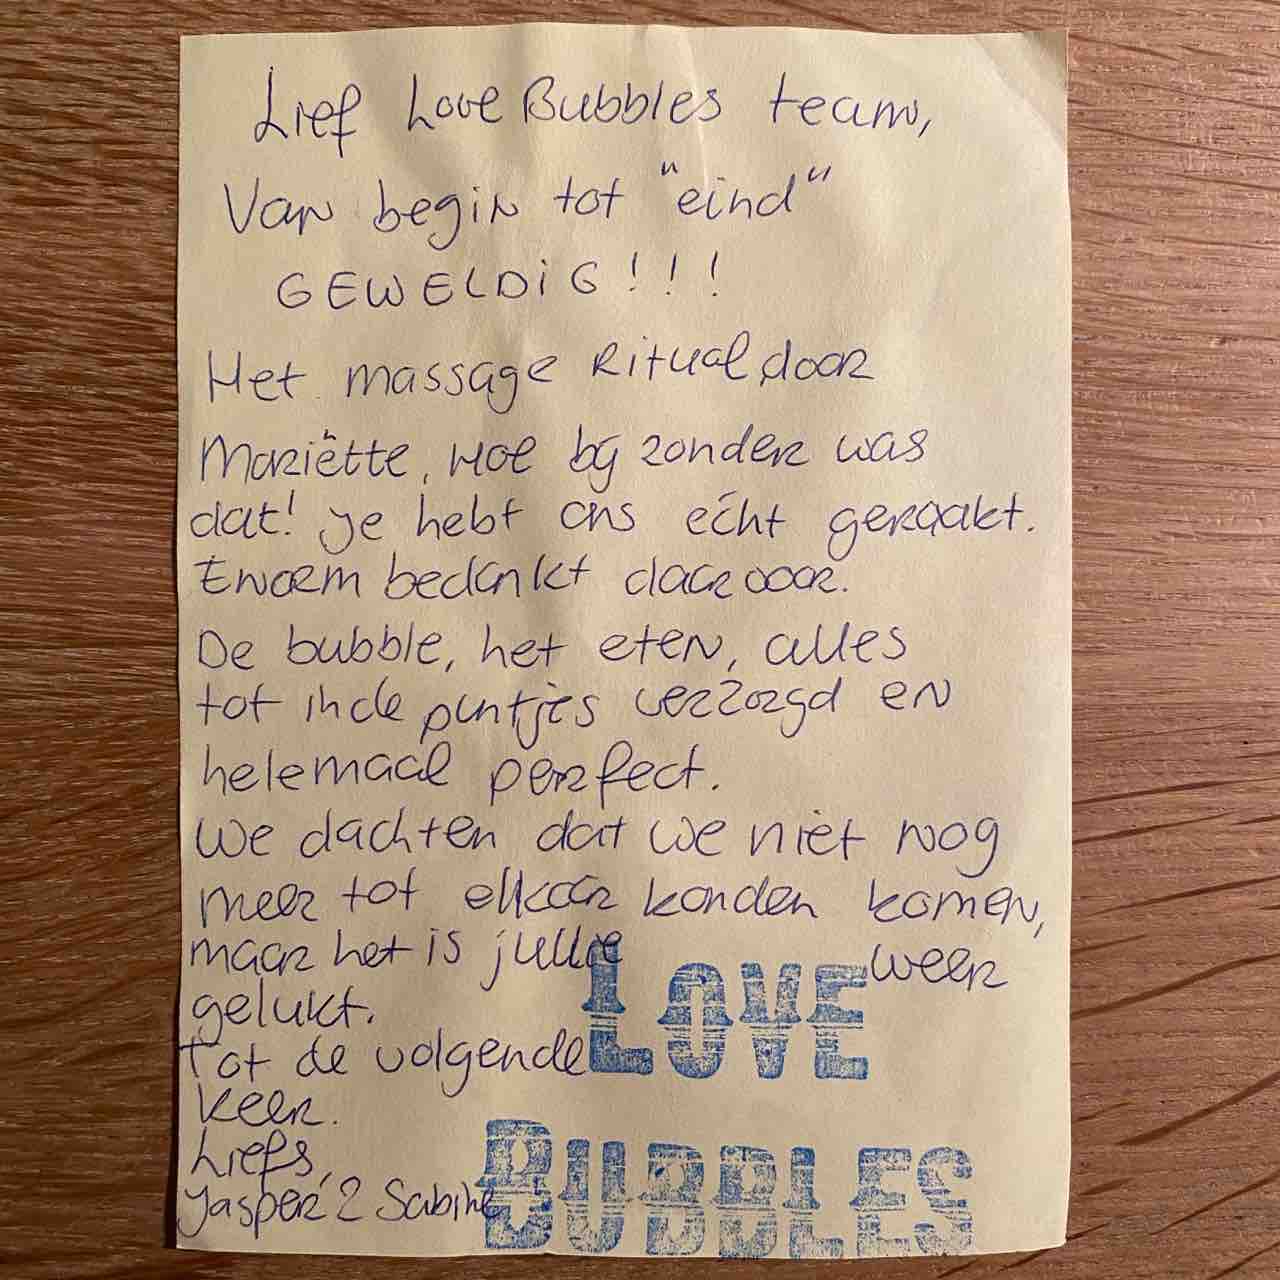 Lief Love Bubbles team,
Van begin tot "eind"
GEWELDIG!!!
Het massage Ritual door
Mariëtte, Hoe bijzonder was
dat! Je hebt ons écht geraakt.
Enorm bedankt daarvoor.
De bubble, het eten, alles
tot in de puntjes verzorgd en
helemaal perfect.
We dachten dat we niet nog
meer tot elkaar konden komen,
maar het is jullie weer
gelukt.
Tot de volgende
keer.
Liefs,
Jasper & Sabine
LOVE
BUBBLES